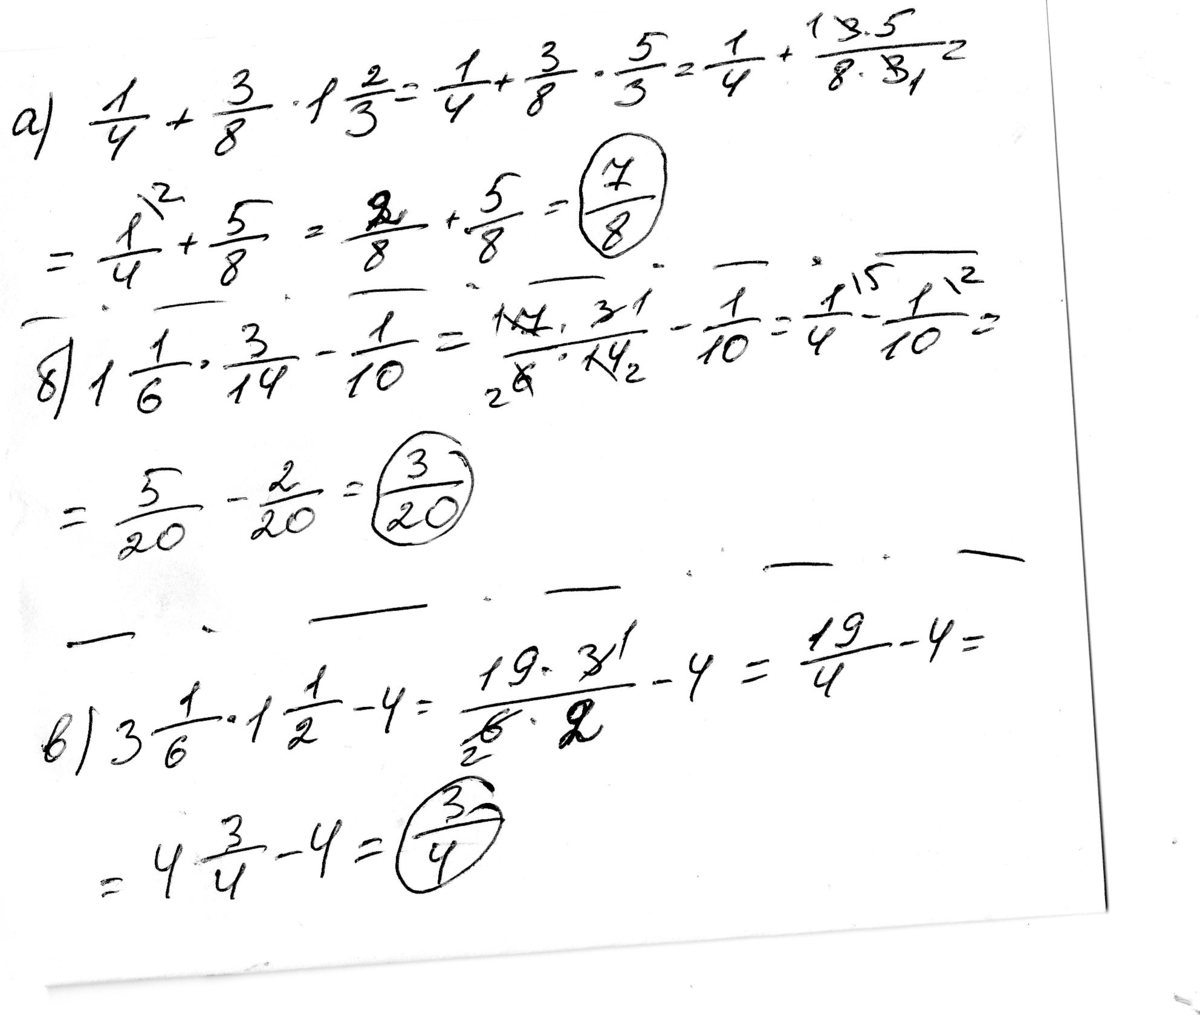 а) 1/4 + 3/8 · 1 2/3 = 1/4 + 3/8 · 5/3 = 1/4 + 1 3·5/8·3 1 =
= 1/4 \2 + 5/8 = 2/8 + 5/8 = 7/8
б) 1 1/6 · 3/14 - 1/10 = 1 7·3 1/2 6·14 2 - 1/10 = 1/4 \5 - 1/10 \2 =
= 5/20 - 2/20 = 3/20
в) 3 1/6 · 1 1/2 - 4 = 19·3 1/2 6·2 - 4 = 19/4 - 4 =
= 4 3/4 - 4 = 3/4